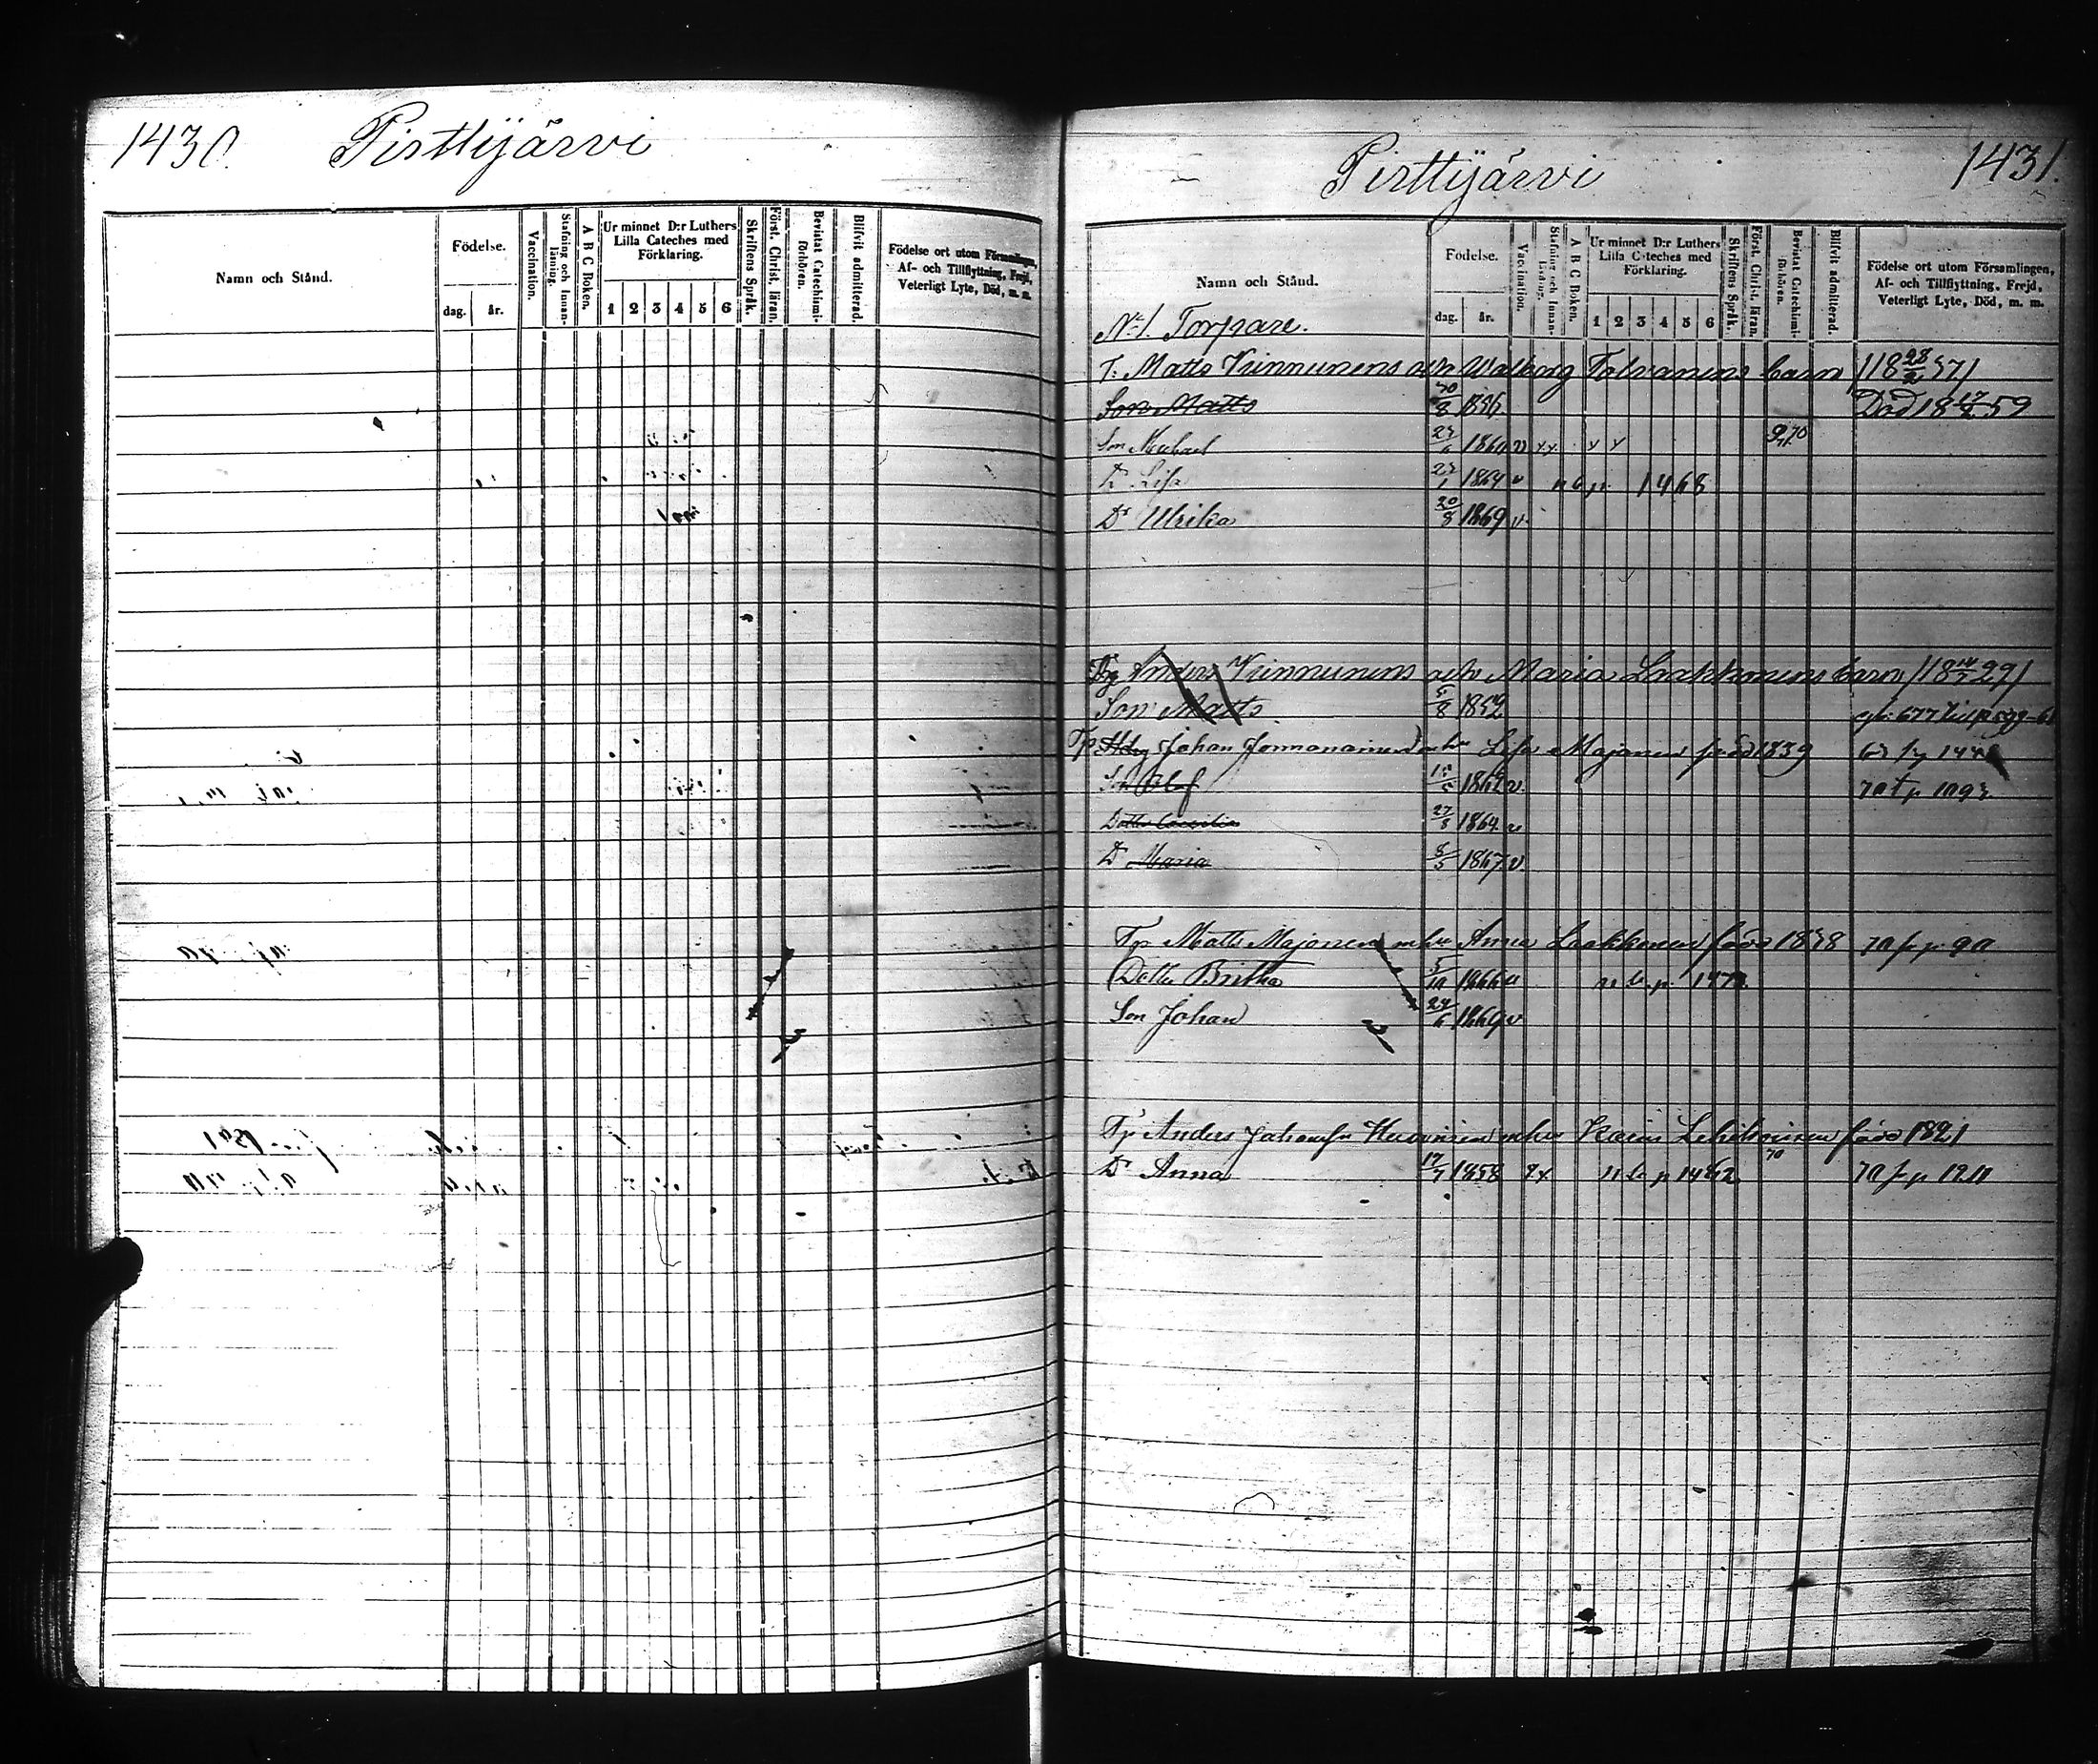 1430. Pisttijärvi
Namn och Stånd.
Födelse.
dag. år.
Vaccination.
Stafning och Innanläsning.
A B C Boken.
Ur minnet D:r Luthers Lilla Cateches med Förklaring.
1 2 3 4 5 6
Skriftens Språk.
Först. Christ. läran.
Bevistat Catechismiförhören.
Blifvit admitterad.
Födelse ort utom Församlingen,
Af- och Tillflyttning, Frejd,
Veterligt Lyte, Död, m. m.
Pisttijärvi 1431.
Namn och Stånd.
Födelse.
dag. år.
Vaccination.
Stafning och Innanläsning.
A B C Boken.
Ur minnet D:r Luthers Lilla Cateches med Förklaring.
1 2 3 4 5 6
Skriftens Språk.
Först. Christ. läran.
Bevistat Catechismiförhören.
Blifvit admitterad.
Födelse ort utom Församlingen,
Af- och Tillflyttning, Frejd,
Veterligt Lyte, Död, m. m.
No 1. Torpare.
T: Matts Kinnunens och Walborg Tolvanens barn /18 28/2 57/
Son Matts 30/8 1856 Död 18 17/2 59
Son Michael 1860 v
Dr Lisa 1864 v n b p 1468
Dr Ulrika 20/8 1869 v.
Anders Kinnunens och Maria Laakkonens barn /18 29/
Son Matts 5/8 1852
Tp Johan mhu Lisa Majonen född 1839
Son Olof 1862 v. 70 f p 1093.
Dotter Caecilia 27/8 1864 v
Dr Maria 8/5 1867 v
Tp Matts Majonen mhu Anna Laakkonen född 1838 70 f p 90
Dotter Britha 5/10 1866 v n b p 147
Son Johan 24/6 1869 v
Tp Anders mhu född 1821
Dr Anna 17/7 1858 n b p 1462 70 f p